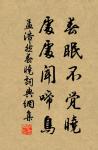 春眠不觉晓
处处闻啼鸟
孟浩然春晓词典网集